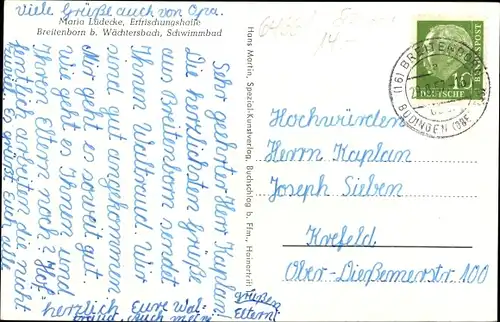 viele Grüße auch von Opa.
Maria Lüdecke, Erfrischungshalle
Breitenborn b. Wächtersbach, Schwimmbad
Sehr geehrter Herr Kaplan!
Die herzlichsten Grüße
aus Breitenborn sendet
Ihnen Waltraud. Wir
sind gut angekommen
Mir geht es soweit gut.
wie geht es Ihnen und
Ihren Eltern noch?
arbeiten die nicht
es grüßt Euch alle
herzlich Eure Wal-
traud. Auch meine
grüßen
Eltern!
Hans Martin, Spezial-Kunstverlag, Buchschlag b. Ffm., Hainertrift
(16) BREITENBORN
BÜDINGEN
10
DEUTSCHE BUNDESPOST
Hochwürden
Herrn Kaplan
Joseph Sieben
Krefeld
Ober-Dießemerstr 100